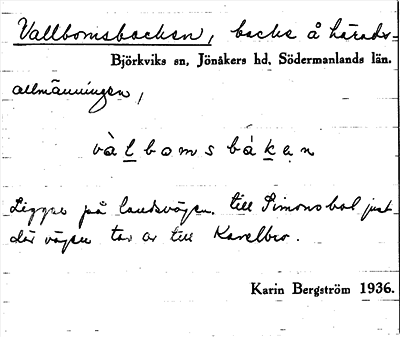 Vallbomsbacken, backe å härads-
Björkviks sn, Jönåkers hd, Södermanlands län.
allmänningen,
vàlbomsbákan
Ligger på landsvägen till Simonsbol just
där vägen tar av till Karelbro.
Karin Bergström 1936.